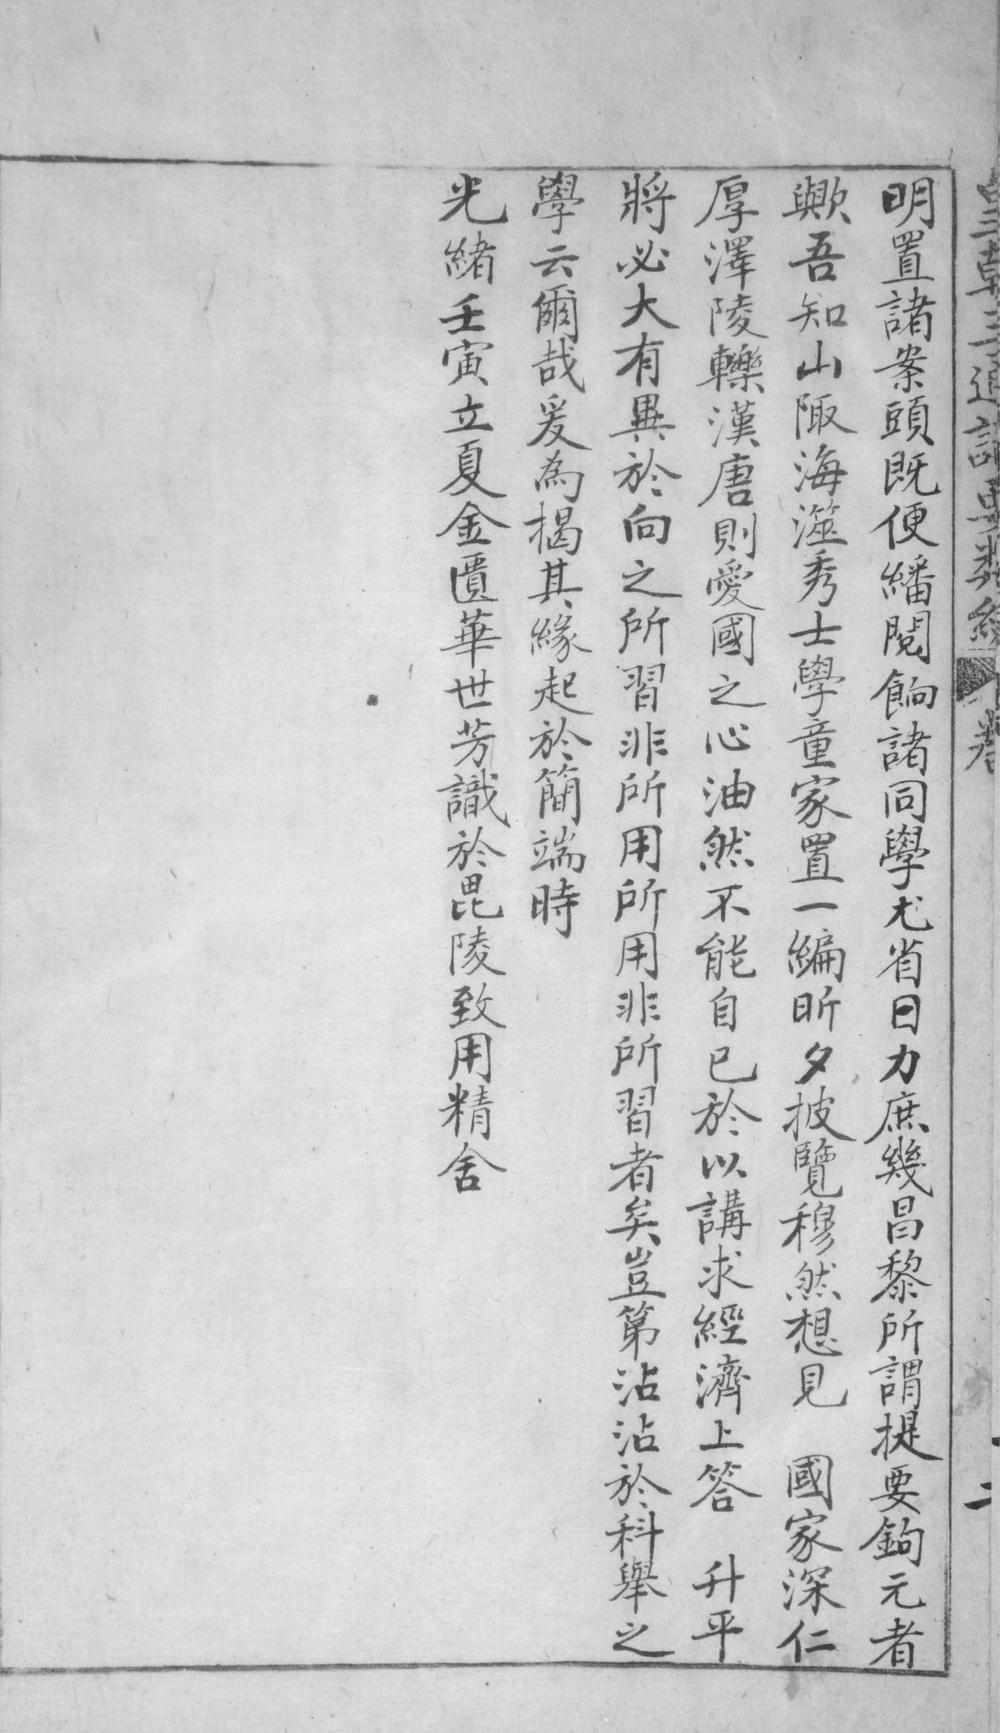 皇朝三通識要類編
卷
二
明置諸案頭既便繙閱餉諸同學尤省日力庶幾昌黎所謂提要鉤元者
歟吾知山陬海澨秀士學童家置一編昕夕披覽穆然想見　國家深仁
厚澤陵轢漢唐則愛國之心油然不能自已於以講求經濟上答　升平
將必大有異於向之所習非所用所用非所習者矣豈第沾沾於科舉之
學云爾哉爰為揭其緣起於簡端時
光緒壬寅立夏金匱華世芳識於毘陵致用精舍